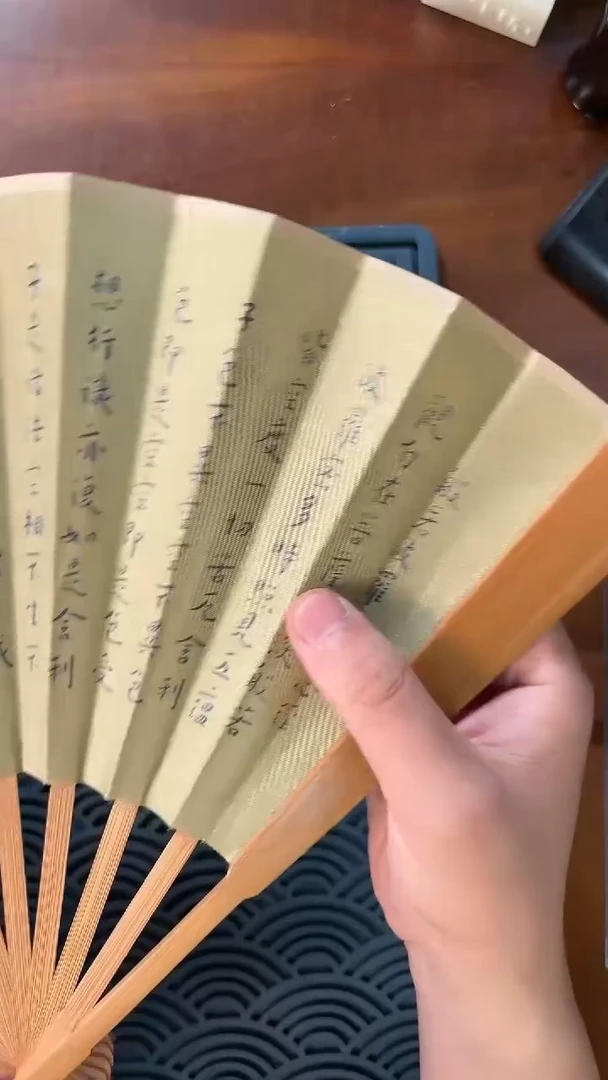 般若波羅心經
觀自在菩薩深般若
波羅蜜多時照見五蘊
皆空度一切苦厄舍利
子色不異空空不異色
色即是空空即是色受
想行識亦復如是舍利
子是諸法空相不生不